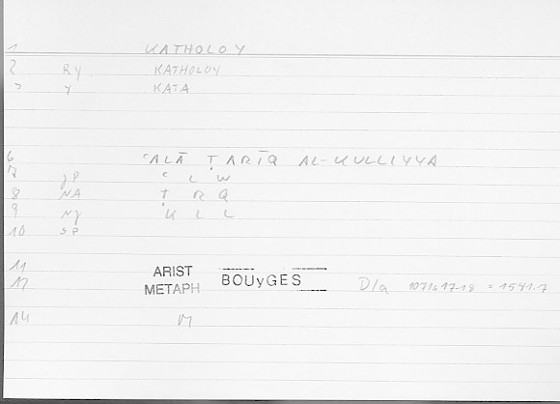 1 KATHOLOY
2 RY KATHOLOY
3 Y KATA
6 ʿALĀ ṬARĪQ AL-KULLIYYA
7 JP ʿ L W
8 NA Ṭ R Q
9 NJ K L L
10 SP
11 ARIST BOUyGES
12 METAPH D/a 1071b17.18 = 1541.7
14 M